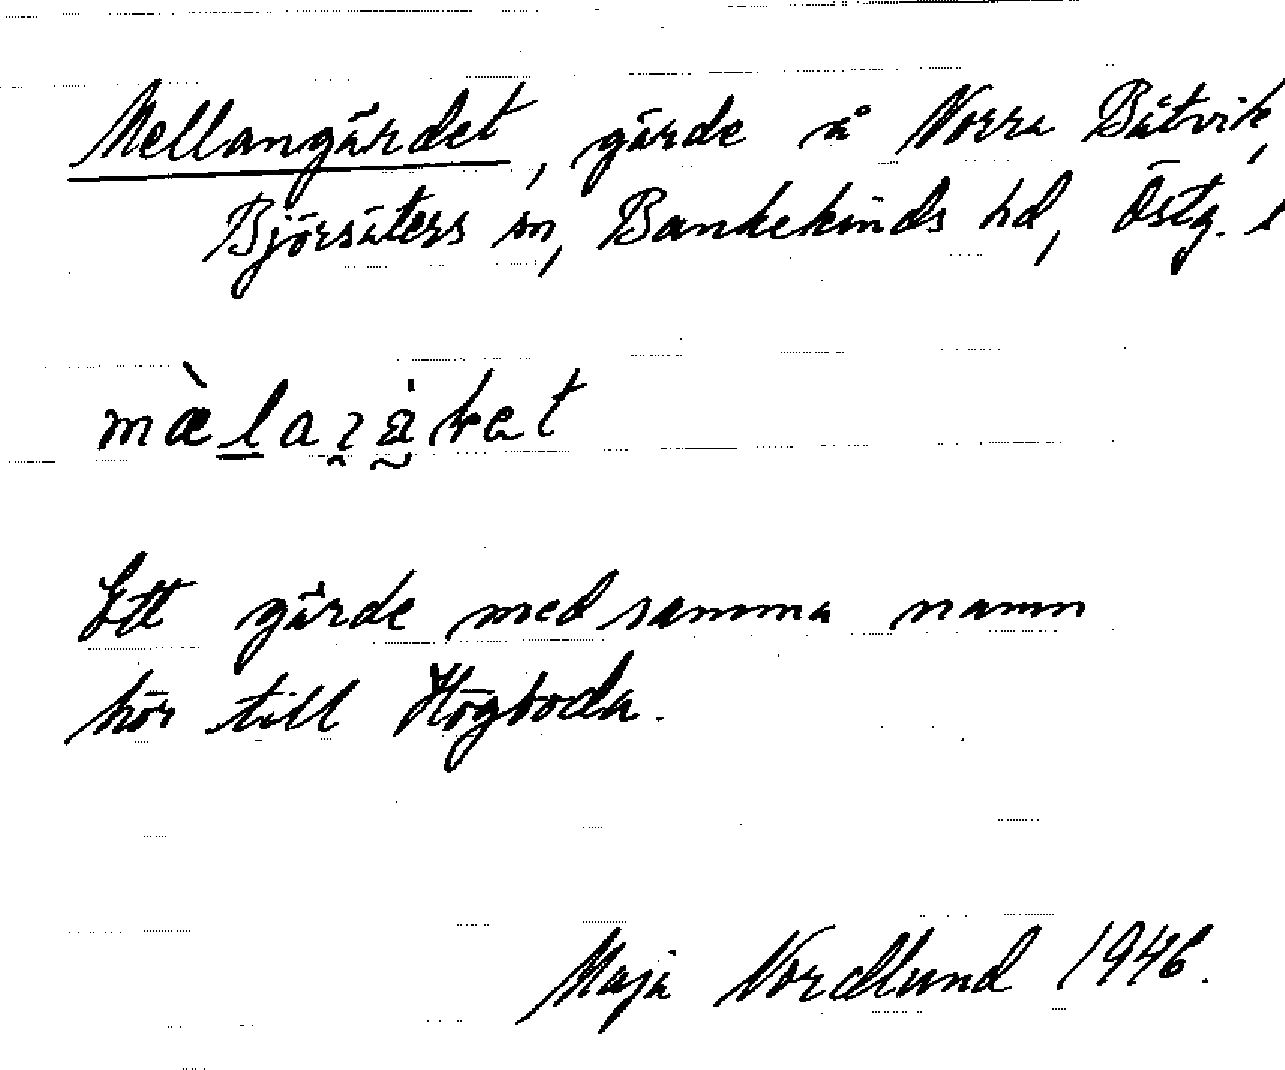 Mellangärdet, gärde å Norra Båtvik,
Björsäters sn, Bankekinds hd, Östg. l
Ett gärde med samma namn
hör till Högboda.
Maja Nordlund 1946.